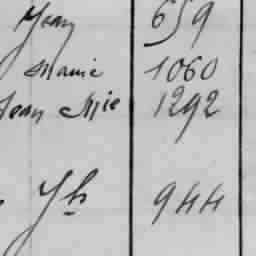 Jean 659
Marie 1060
Jean Mie 1292
Jh 944